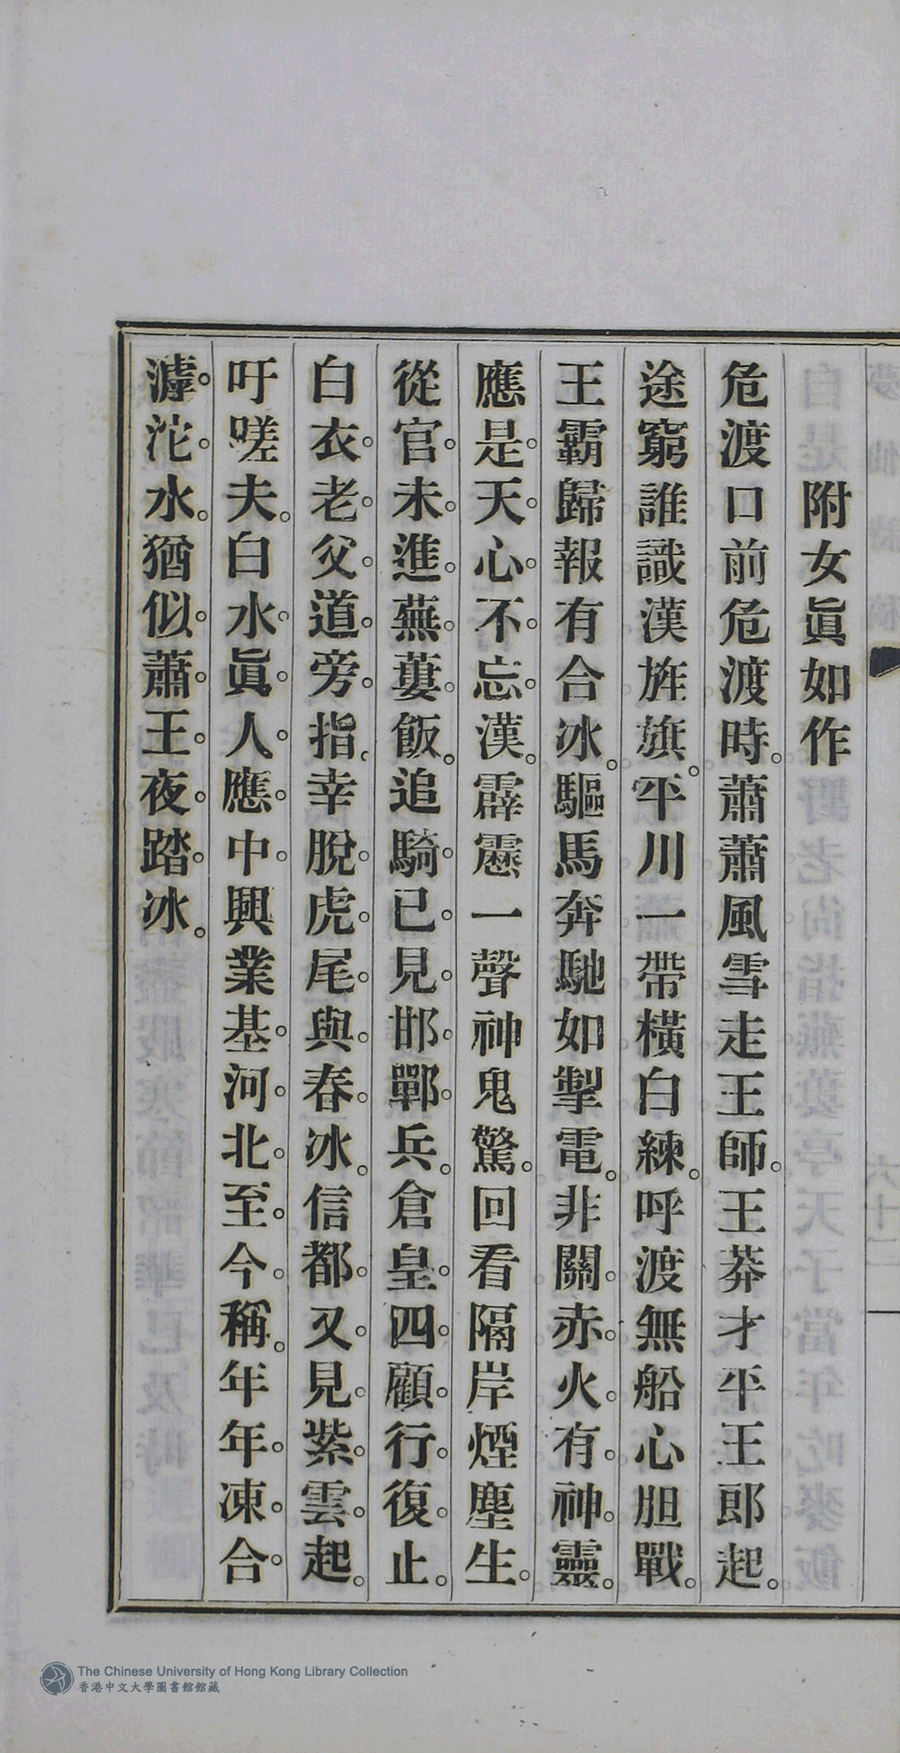 附女眞如作
危渡口前危渡時。蕭蕭風雪走王師。王莽才平王郎起。
途窮誰識漢旌旗。平川一帶橫白練。呼渡無船心胆戰。
王霸歸報有合冰。驅馬奔馳如掣電。非關赤火有神靈。
應是天心不忘漢。霹靂一聲神鬼驚。回看隔岸煙塵生。
從官未進蕪蔞飯。追騎已見邯鄲兵。倉皇四顧行復止。
白衣老父道旁指。幸脫虎尾與春冰。信都又見紫雲起。
吁嗟夫。白水眞人應中興業基河北至今稱。年年凍合
滹沱水。猶似蕭王夜踏冰。
The Chinese University of Hong Kong Library Collection
香港中文大學圖書館館藏